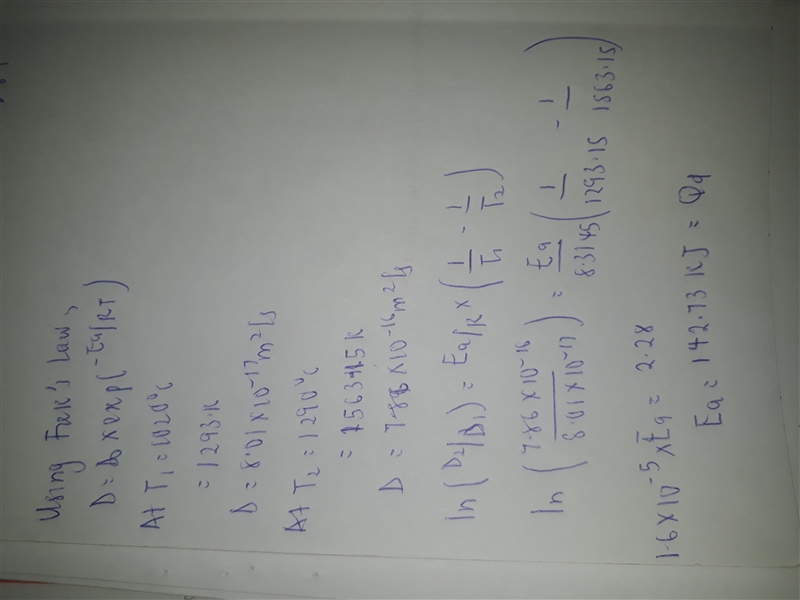 Using Fick's Law,
D = D₀ x exp(-Ea/RT)
At T₁ = 1020°C
= 1293.K
D = 8.01 x 10⁻¹⁷ m²/s
At T₂ = 1290°C
= 1563.15 K
D = 7.86 x 10⁻¹⁶ m²/s
ln (D₂/D₁) = Ea/R x (1/T₁ - 1/T₂)
ln (7.86 x 10⁻¹⁶ / 8.01 x 10⁻¹⁷) = Ea/8.3145 (1/1293.15 - 1/1563.15)
1.6 x 10⁻⁵ x Ea = 2.28
Ea = 142.73 KJ = Qd